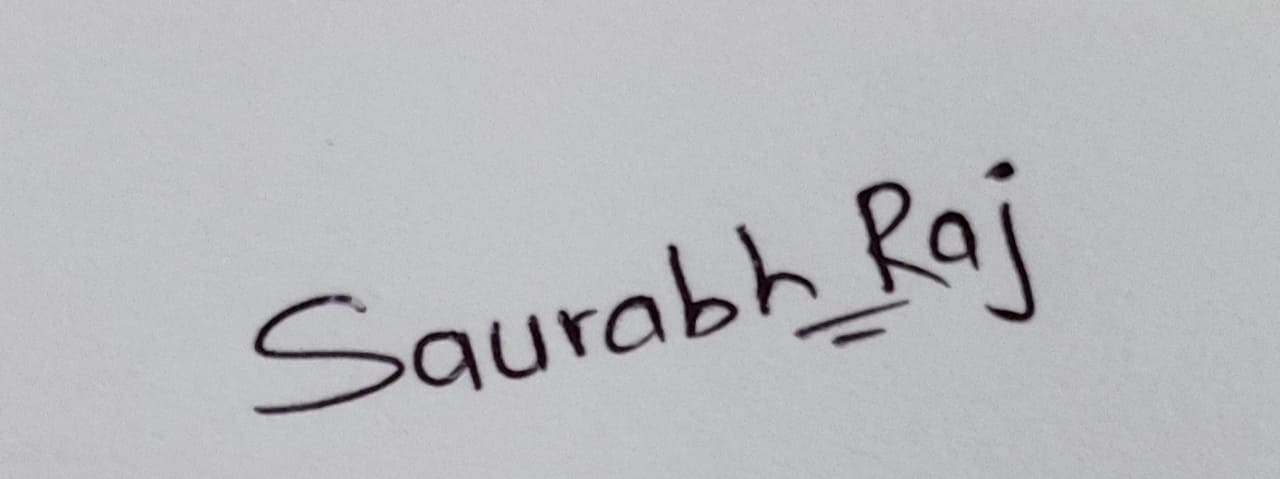 Saurabh Raj